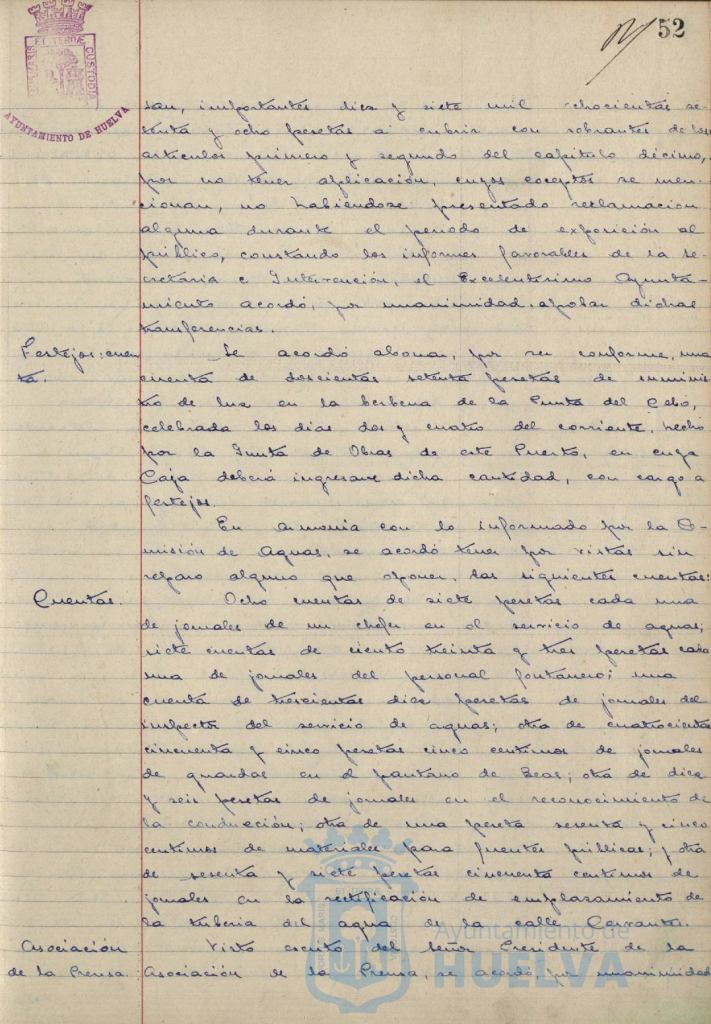 52
PORTUS MARIS ET TERRAE CUSTODIA
AYUNTAMIENTO DE HUELVA
san, importantes diez y siete mil ochocientas se-
tenta y ocho pesetas a cubrir con sobrantes de los
artículos primero y segundo del capítulo décimo,
por no tener aplicación, cuyos conceptos se men-
cionan, no habiéndose presentado reclamación
alguna durante el periodo de exposición al
público, constando los informes favorables de la Se-
cretaria e Intervención, el Excelentísimo Ayunta-
miento acordó, por unanimidad, aprobar dichas
transferencias.
Festejos: cuen
ta.
Se acordó abonar, por ser conforme, una
cuenta de doscientas setenta pesetas de suminis
tro de luz en la berbena de la Punta del Cebo,
celebrada los dias dos y cuatro del corriente, hecho
por la Junta de Obras de este Puerto, en cuya
Caja deberá ingresarse dicha cantidad, con cargo a
festejos.
En armonía con lo informado por la Co-
misión de Aguas, se acordó tener por vistas sin
reparo alguno que oponer, las siguientes cuentas:
Cuentas.
Ocho cuentas de siete pesetas cada una
de jornales de un chofer en el servicio de aguas;
siete cuentas de ciento treinta y tres pesetas cada
una de jornales del personal fontanero; una
cuenta de trescientas diez pesetas de jornales del
inspector del servicio de aguas; otra de cuatrocientas
cincuenta y cinco pesetas cinco centimos de jornales
de guardas en el pantano de Beas; otra de diez
y seis pesetas de jornales en el reconocimiento de
la conducción; otra de una peseta sesenta y cinco
centimos de materiales para fuentes públicas; y otra
de sesenta y siete pesetas cincuenta centimos de
jornales en la rectificación de emplazamiento de
la tuberia del agua de la calle Cervantes.
Asociación
de la Prensa
Visto escrito del Señor Presidente de la
Asociación de la Prensa, se acordó, por unanimidad
Ayuntamiento de
HUELVA